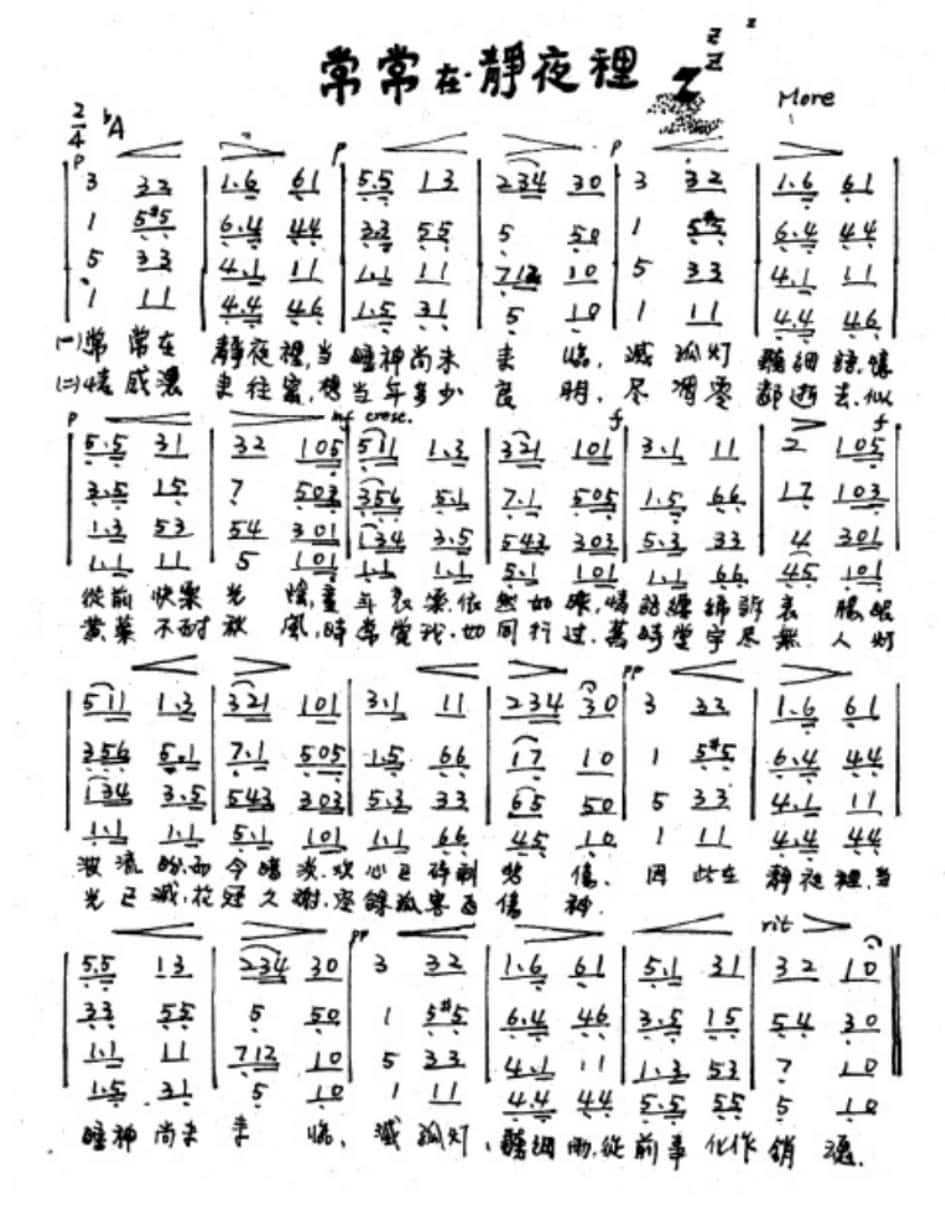 常常在靜夜裡
z
z
z
z
More
2/4 ♭A
p p p
3 32 | 1.6 61 | 5.5 13 | 234 30 | 3 32 | 1.6 61
1 5#5 | 6.4 44 | 3.3 55 | 5 50 | 1 5#5 | 6.4 44
5 33 | 4.1 11 | 1.1 11 | 712 10 | 5 33 | 4.1 11
1 11 | 4.4 46 | 1.5 31 | 5 10 | 1 11 | 4.4 46
(一)常 常在 靜夜裡,當 睡神尚未 來 臨, 滅孤灯 聽細語,懷
(二)情感濃 來往密,想當年多少 良 朋, 尽凋零 都逝去,似
p mf cresc. f f
5.5 31 | 32 105 | 511 1.3 | 321 101 | 3.1 11 | 2 105
3.5 15 | 7 503 | 356 5.1 | 7.1 505 | 1.5 66 | 17 103
1.3 53 | 54 301 | 134 3.5 | 543 303 | 5.3 33 | 4 301
1.1 11 | 5 101 | 1.1 1.1 | 5.1 101 | 1.1 66 | 45 101
從前 快樂 光 憶,童 年哀樂,依 然如昨,情話纏綿訴衷 腸,眼
黃葉 不耐 秋 風,時常覺我,如 同行过, 堂宇尽無 人 灯
pp
511 1.3 | 321 101 | 3.1 11 | 234 30 | 3 32 | 1.6 61
356 5.1 | 7.1 505 | 1.5 66 | 17 10 | 1 5#5 | 6.4 44
134 3.5 | 543 303 | 5.3 33 | 65 50 | 5 33 | 4.1 11
1.1 1.1 | 5.1 101 | 1.1 66 | 45 10 | 1 11 | 4.4 44
波流盼,而 今暗淡,歡心已碎剩 悲 傷, 因 此在 靜夜裡,當
光已滅,花冠久謝,空餘孤客百 傷 神.
pp rit
5.5 13 | 234 30 | 3 32 | 1.6 61 | 5.1 31 | 32 10
33 55 | 5 50 | 1 5#5 | 6.4 46 | 3.5 15 | 54 30
1.1 11 | 712 10 | 5 33 | 4.1 11 | 1.3 53 | 7 10
1.5 31 | 5 10 | 1 11 | 4.4 44 | 5.5 55 | 5 10
睡神 尚未 來 臨, 滅 孤灯, 聽細雨,從前事 化作 銷 魂.